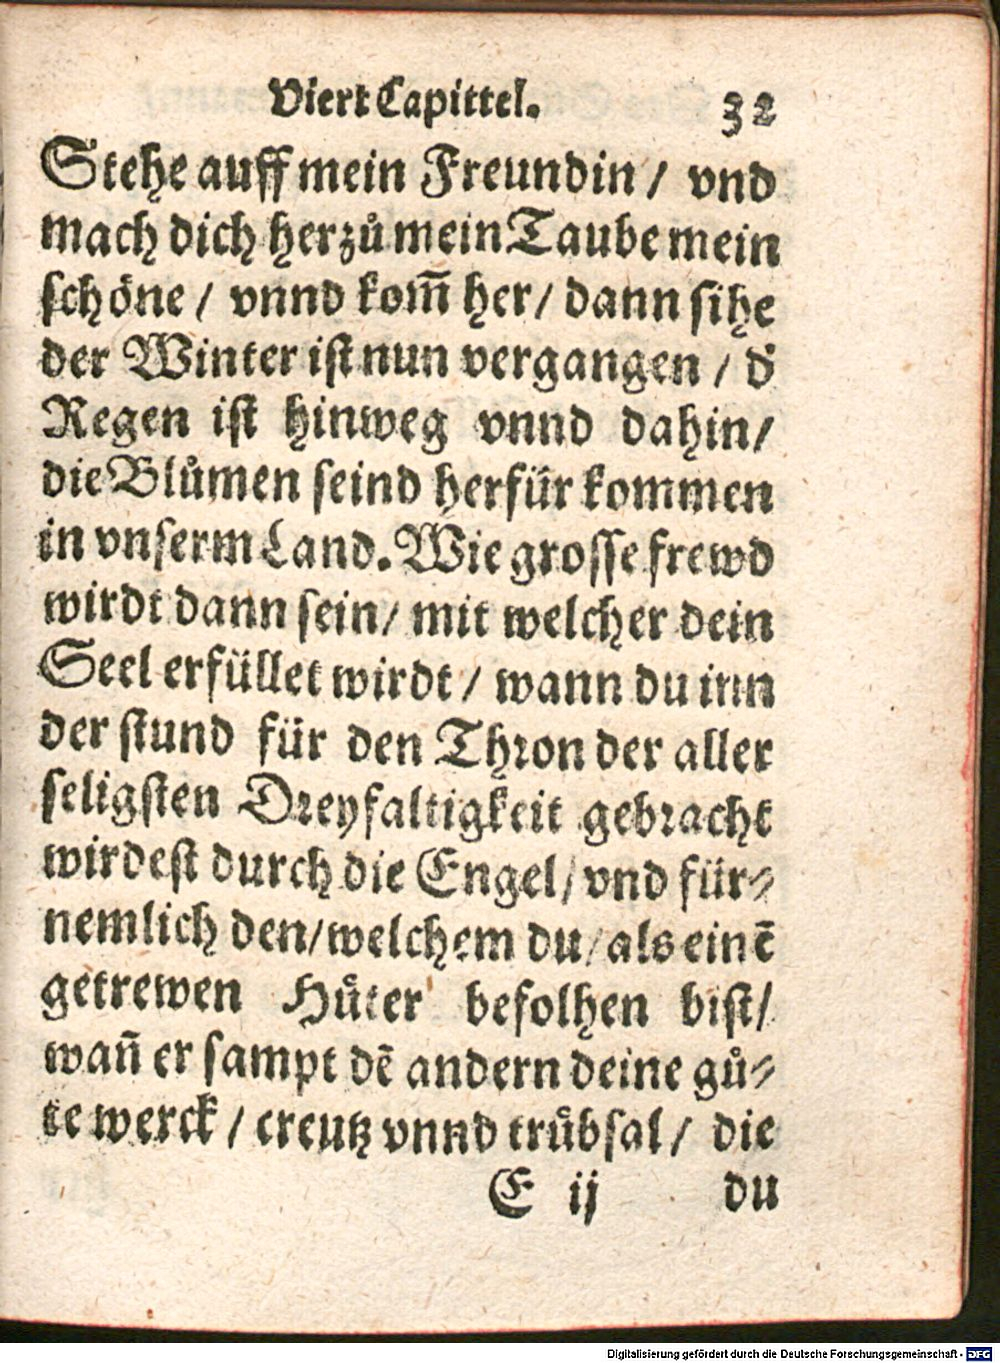 Viert Capittel. 32
Stehe auff mein Freundin / vnd
mach dich herzů mein Taube mein
schöne / vnnd kom̃ her / dann sihe
der Winter ist nun vergangen / d̉
Regen ist hinweg vnnd dahin /
die Blůmen seind herfür kommen
in vnserm Land. Wie grosse frewd
wirdt dann sein / mit welcher dein
Seel erfüllet wirdt / wann du inn
der stund für den Thron der aller
seligsten Dreyfaltigkeit gebracht
wirdest durch die Engel / vnd für⸗
nemlich den / welchem du / als einẽ
getrewen Hůter befolhen bist /
wañ er sampt dẽ andern deine gů⸗
te werck / creutz vnnd trůbsal / die
E ij du
Digitalisierung gefördert durch die Deutsche Forschungsgemeinschaft - DFG